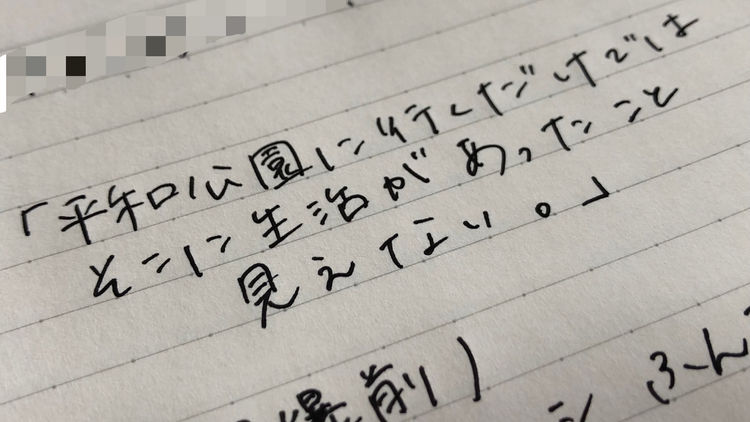 「平和公園に行くだけでは
そこに生活があったこと
見えてない。」
爆前)
ふーん